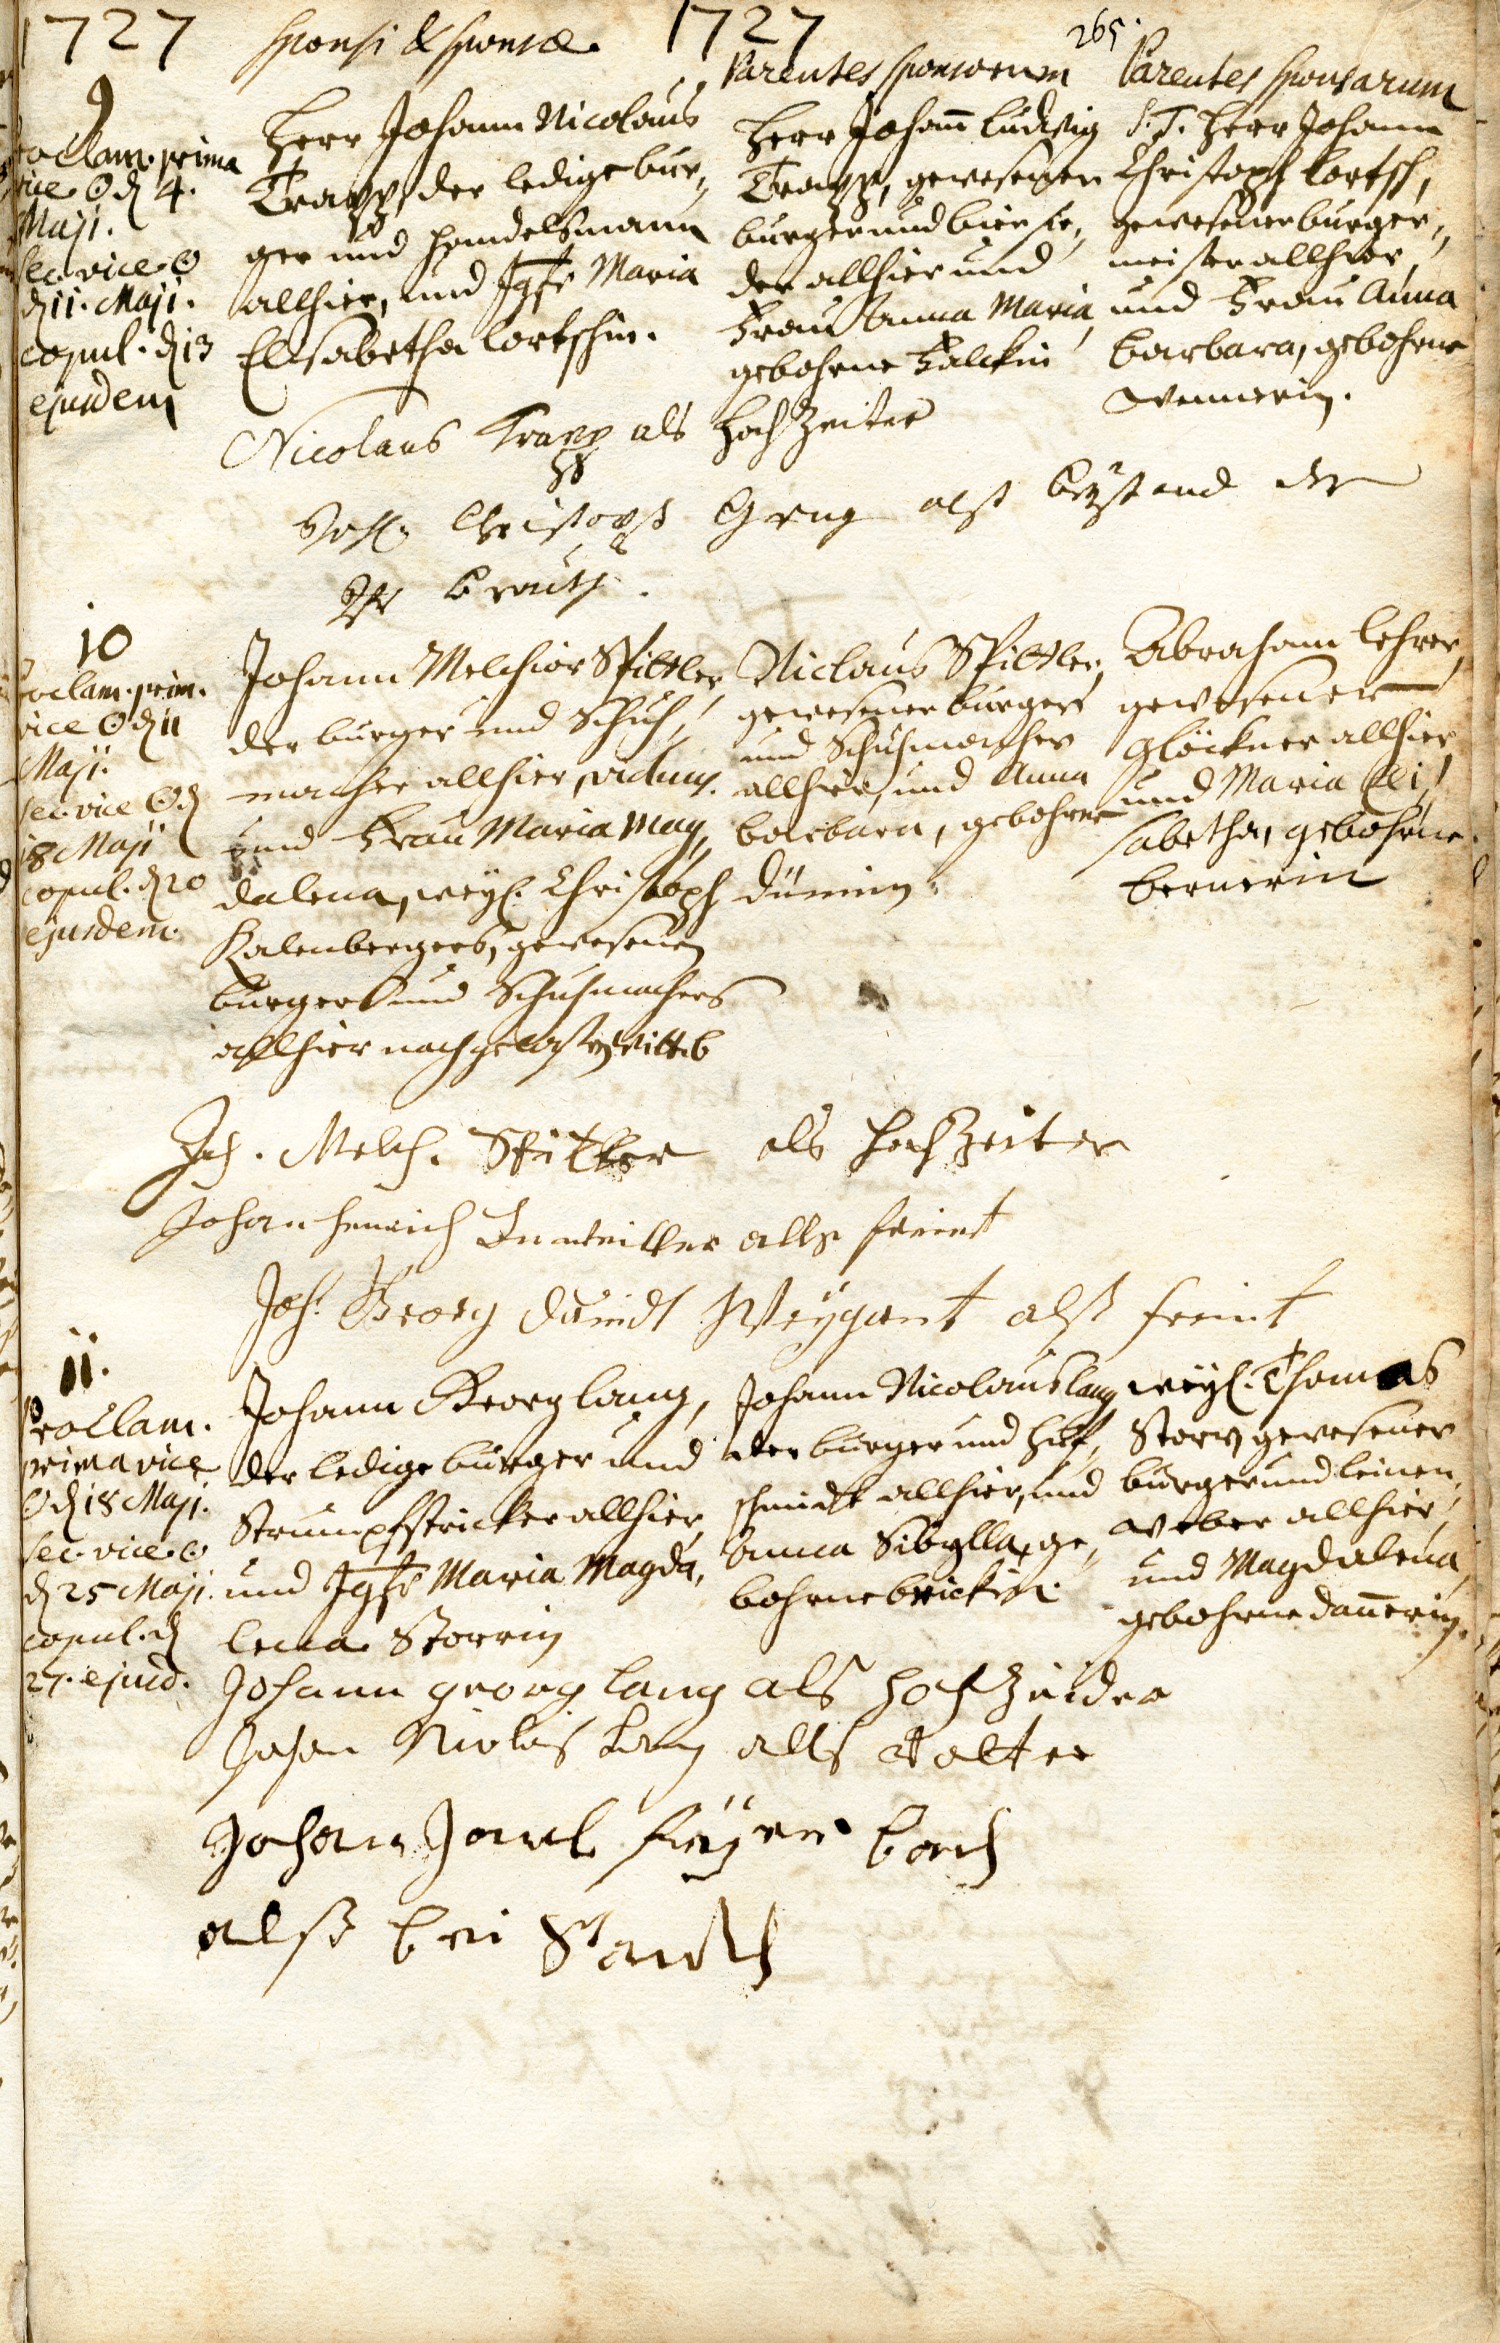 1727 sponsi & sponsæ. 1727
265
Parentes sponsorum
Parentes sponsarum
9
Proclam. prima
vice ☉ d. 4.
Maji.
sec. vice ☉
d. 11. Maji.
copul. d. 13
ejusdem
Herr Johann Nicolaus
Trapp, der ledige bur,,
ger und handelsmann
allhier, und Jgfr. Maria
Elisabetha Cortschin.
Herr Johann Ludwig
Trapp, gewesener
burger und biersie,,
der allhier und
Frau Anna Maria,
gebohrne Falckin
S. T. Herr Johann
Christoph Cortsch,
gewesener burger,,
meister allhier,
und Frau Anna
barbara, gebohrne
Wennerin.
Nicolaus Trapp als Hochzeiter
Christoph als beystand der
Jfr brauth.
10
Proclam. prim.
vice ☉ d. 11
Maji.
sec. vice ☉ d.
18 Maji
copul. d. 20
ejusdem.
Johann Melchior Spittler,
der burger und Schuh,,
macher allhier, viduus.
und Frau Maria Mag,,
dalena, weyl. Christoph
Kalenbergers, gewesenen
burgers und Schuhmachers
allhier nachgelaßne Wittib
Niclaus Spittler,
gewesener burger
und Schuhmacher
allhier, und Anna
barbara, gebohrne
Dümin.
Abraham Lehrer,
gewesener
Glöckner allhier
und Maria Eli,,
sabetha, gebohrne
bernerin
Joh. Melch. Spittler als Hochzeiter
Johan Henrich alls freint
Joh. Georg Weygant alß freint
11.
Proclam.
prima vice
☉ d. 18 Maji.
sec. vice ☉
d. 25 Maji.
copul. d.
27. ejusd.
Johann Georg Lang,
der ledige burger und
Strumpfstricker allhier,
und Jgfr. Maria Magda,,
lena Storrin
Johann Nicolaus Lang
der burger und huf,,
schmidt allhier, und
Anna Sibylla, ge,,
bohrne brickin.
weyl. Thomas
Storr, gewesener
burger und leinen,,
weber allhier,
und Magdalena,
gebohrne Dannerin.
Johann georg Lang als Hochzeider
Johan Nicolas Lang alls Vatter
Johan
alß bei Standh